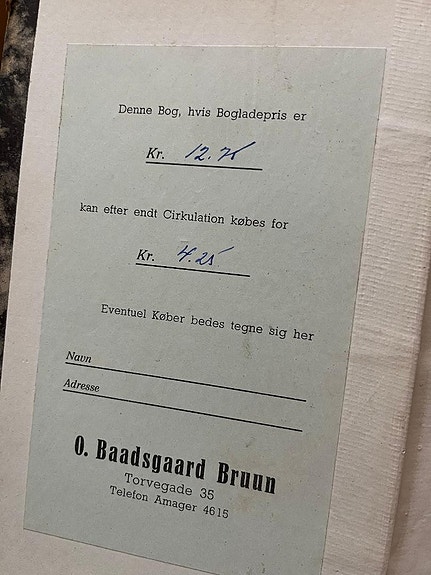 Denne Bog, hvis Bogladepris er
Kr. 12.75
kan efter endt Cirkulation købes for
Kr. 4.25
Eventuel Køber bedes tegne sig her
Navn
Adresse
O. Baadsgaard Bruun
Torvegade 35
Telefon Amager 4615